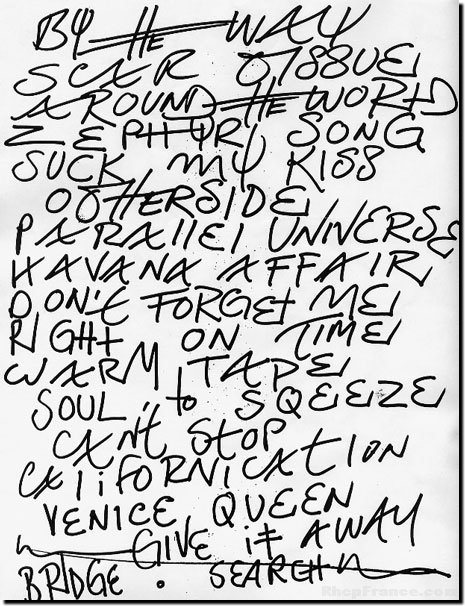 BY THE WAY
SCAR TISSUE
AROUND THE WORLD
ZEPHYR SONG
SUCK MY KISS
OTHERSIDE
PARALLEL UNIVERSE
HAVANA AFFAIR
DON'T FORGET ME
RIGHT ON TIME
WARM TAPE
SOUL to SQEEZE
CAN't STOP
CALIFORNICATION
VENICE QUEEN
GIVE it AWAY
BRIDGE . SEARCH
RhcpFrance.com